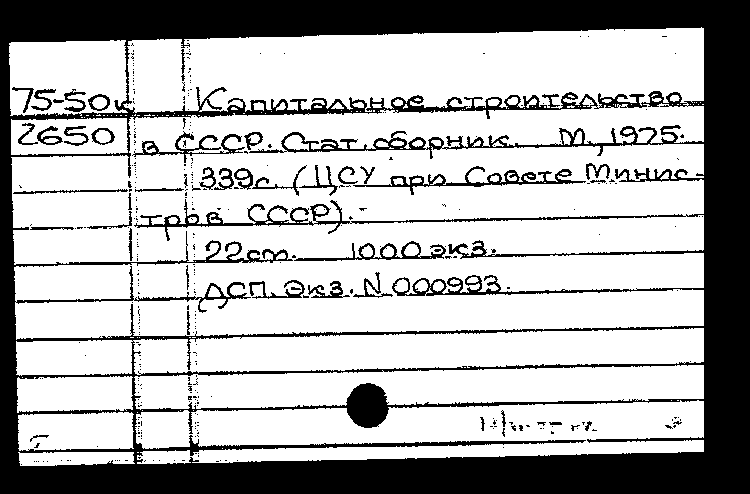 75-50к Капитальное строительство
2650 в СССР. Стат. сборник. М., 1975.
339с. (ЦСУ при Совете Минис-
тров СССР).-
22см. 1000 экз.
ДСП. Экз. N 000993.